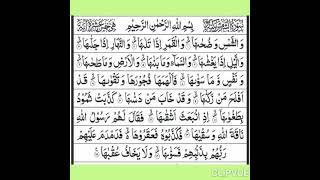 بِسْمِ اللّٰهِ الرَّحْمٰنِ الرَّحِيْمِ
وَالشَّمْسِ وَضُحٰىهَا ۙ وَالْقَمَرِ اِذَا تَلٰىهَا ۙ وَالنَّهَارِ اِذَا جَلّٰىهَا ۙ
وَالَّيْلِ اِذَا يَغْشٰىهَا ۙ وَالسَّمَآءِ وَمَا بَنٰىهَا ۙ وَالْاَرْضِ وَمَا طَحٰىهَا ۙ
وَنَفْسٍ وَّمَا سَوّٰىهَا ۙ فَاَلْهَمَهَا فُجُوْرَهَا وَتَقْوٰىهَا ۙ قَدْ
اَفْلَحَ مَنْ زَكّٰىهَا ۙ وَقَدْ خَابَ مَنْ دَسّٰىهَا ۙ كَذَّبَتْ ثَمُوْدُ
بِطَغْوٰىهَاۤ ۙ اِذِ انْۢبَعَثَ اَشْقٰىهَا ۙ فَقَالَ لَهُمْ رَسُوْلُ اللّٰهِ
نَاقَةَ اللّٰهِ وَسُقْيٰهَا ۙ فَكَذَّبُوْهُ فَعَقَرُوْهَا ۙ فَدَمْدَمَ عَلَيْهِمْ
رَبُّهُمْ بِذَنْۢبِهِمْ فَسَوّٰىهَا ۙ وَلَا يَخَافُ عُقْبٰهَا